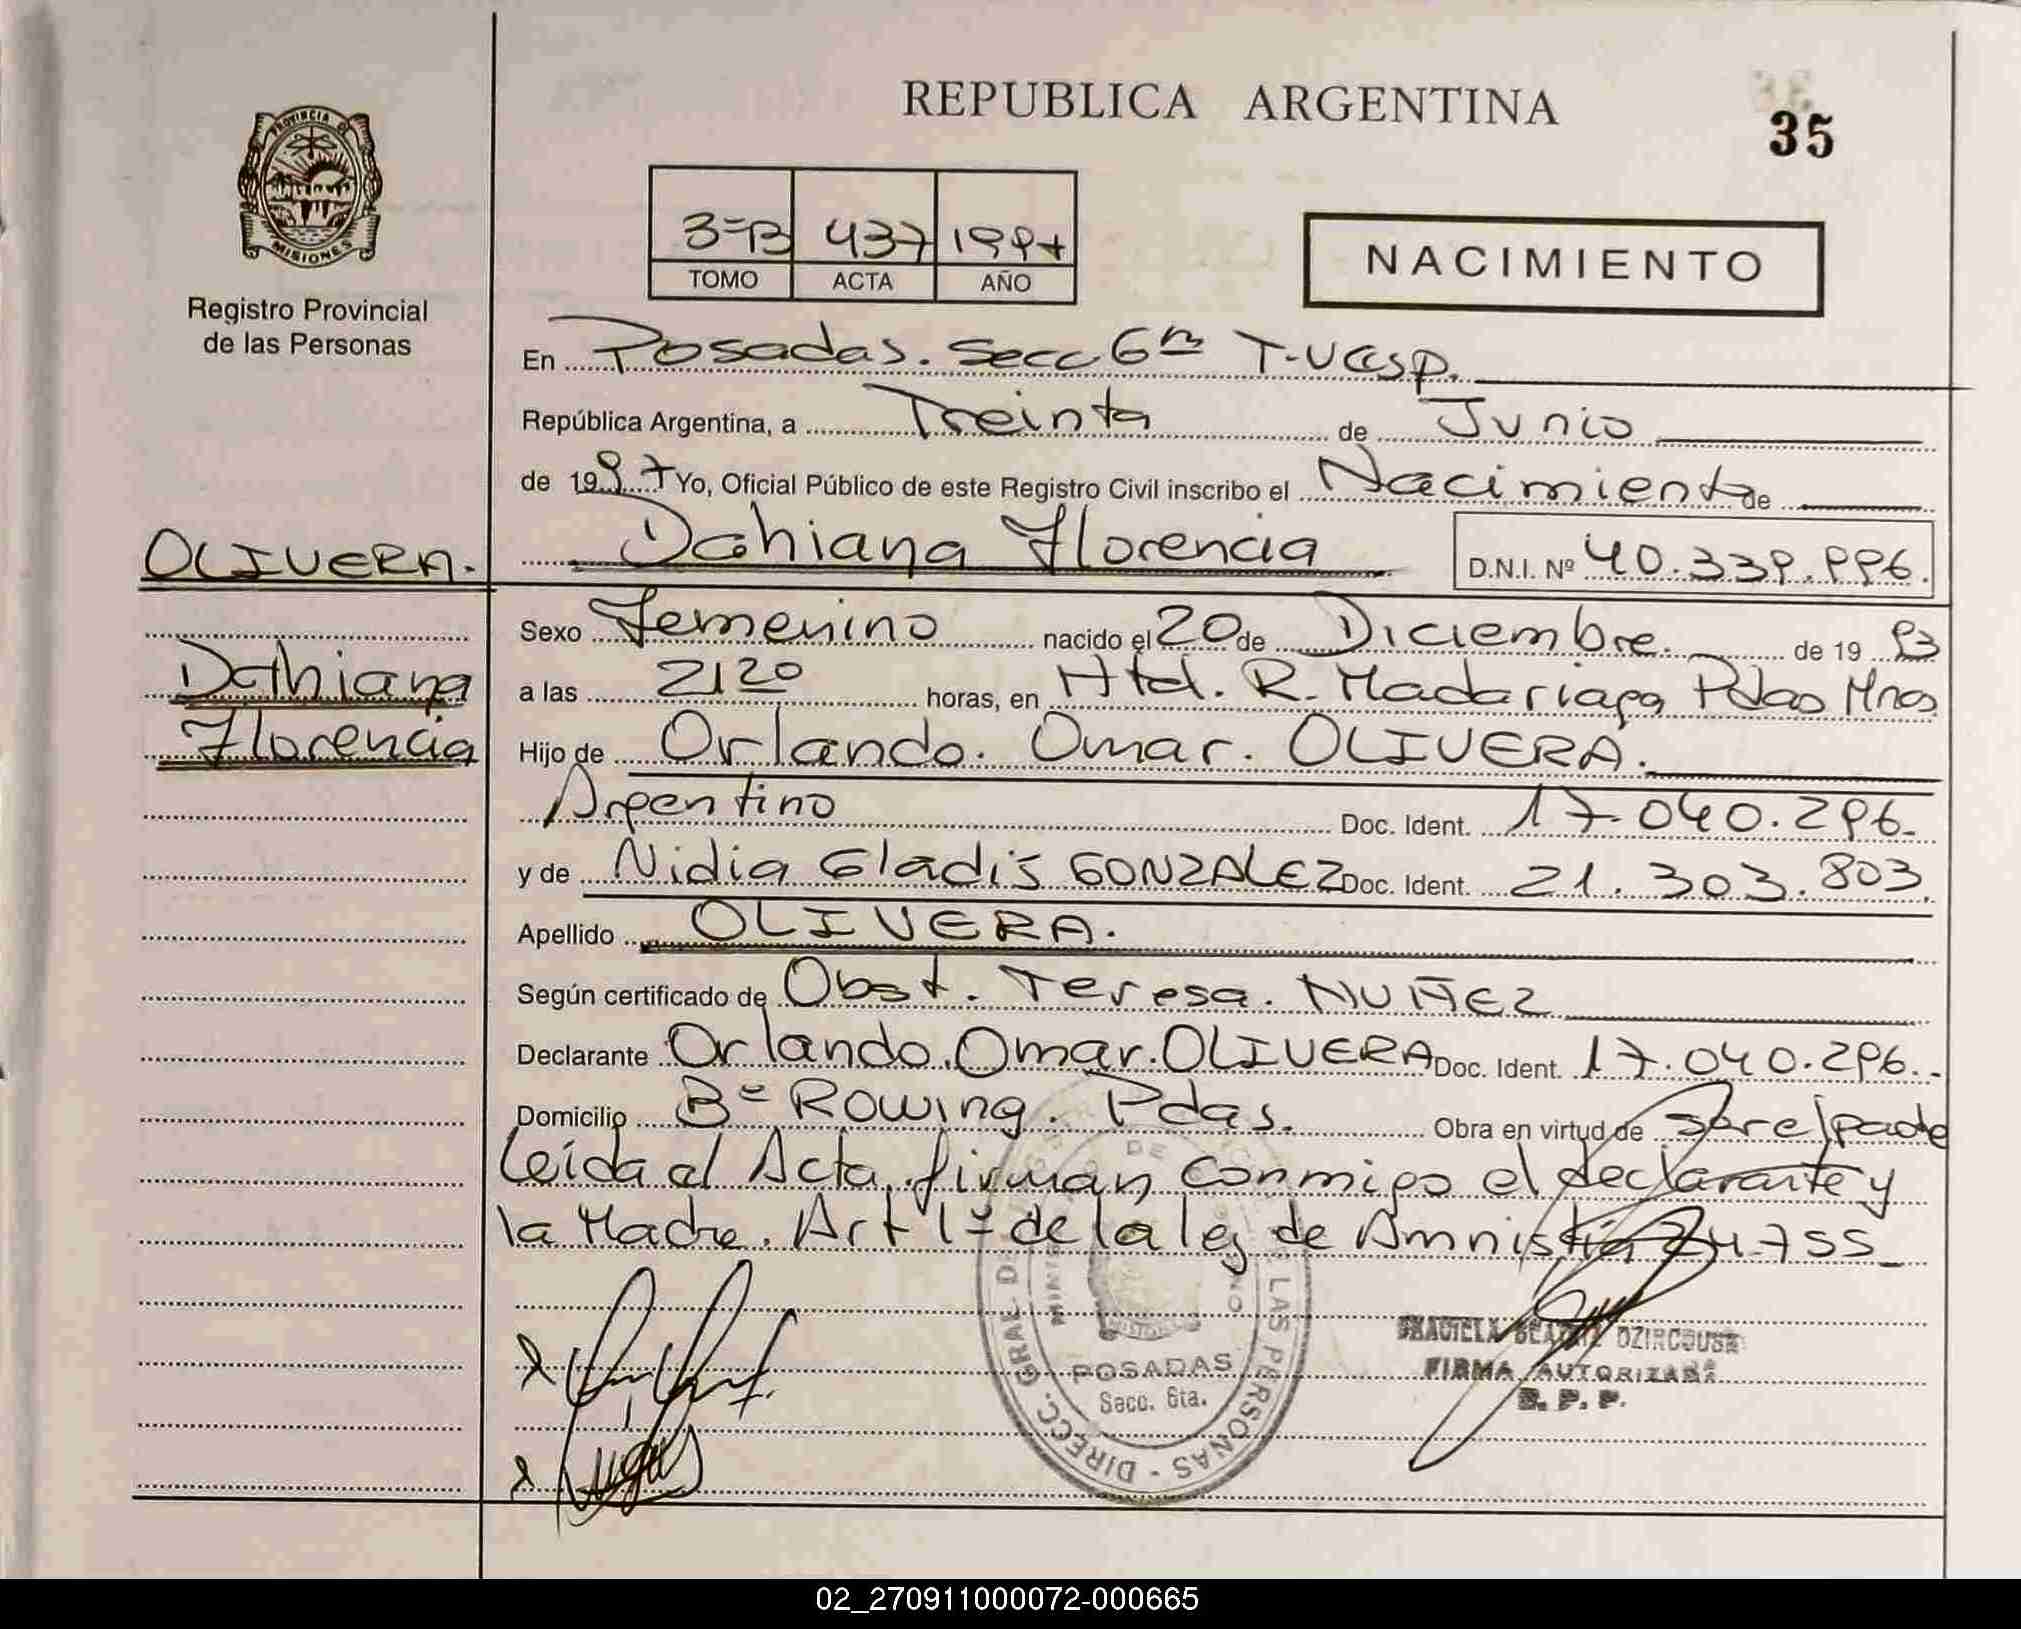 REPUBLICA ARGENTINA
35
PROVINCIA DE
MISIONES
Registro Provincial
de las Personas
3=B 437 1997
TOMO ACTA AÑO
NACIMIENTO
En Posadas. Secc 6ta
República Argentina, a Treinta de Junio
de 1997 Yo, Oficial Público de este Registro Civil inscribo el Nacimiento de
OLIVERA.
Dahiana Florencia D.N.I. Nº 40.339.996.
Sexo Femenino nacido el 20 de Diciembre. de 19 93
Dahiana
a las 2120 horas, en Htal. R. Madariaga Pdas Mnes
Florencia
Hijo de Orlando. Omar. OLIVERA.
Argentino Doc. Ident. 17.040.296.
y de Nidia Gladis GONZALEZ Doc. Ident. 21.303.803
Apellido OLIVERA.
Según certificado de Obst. Teresa. NUÑEZ
Declarante Orlando. Omar. OLIVERA Doc. Ident. 17.040.296.
Domicilio Bº Rowing. Pdas. Obra en virtud de ser el padre
Leída el Acta, firman conmigo el declarante y
la Madre. Art 1º de la ley de Amnistía 24.755
POSADAS
Secc. 6ta.
DIRECC. GRAL. DE LAS PERSONAS
FIRMA AUTORIZADA
R. P. P.
02_270911000072-000665